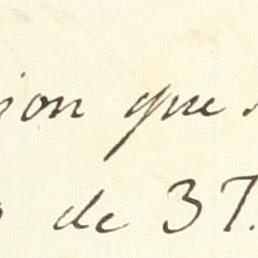 ion que
de 37.